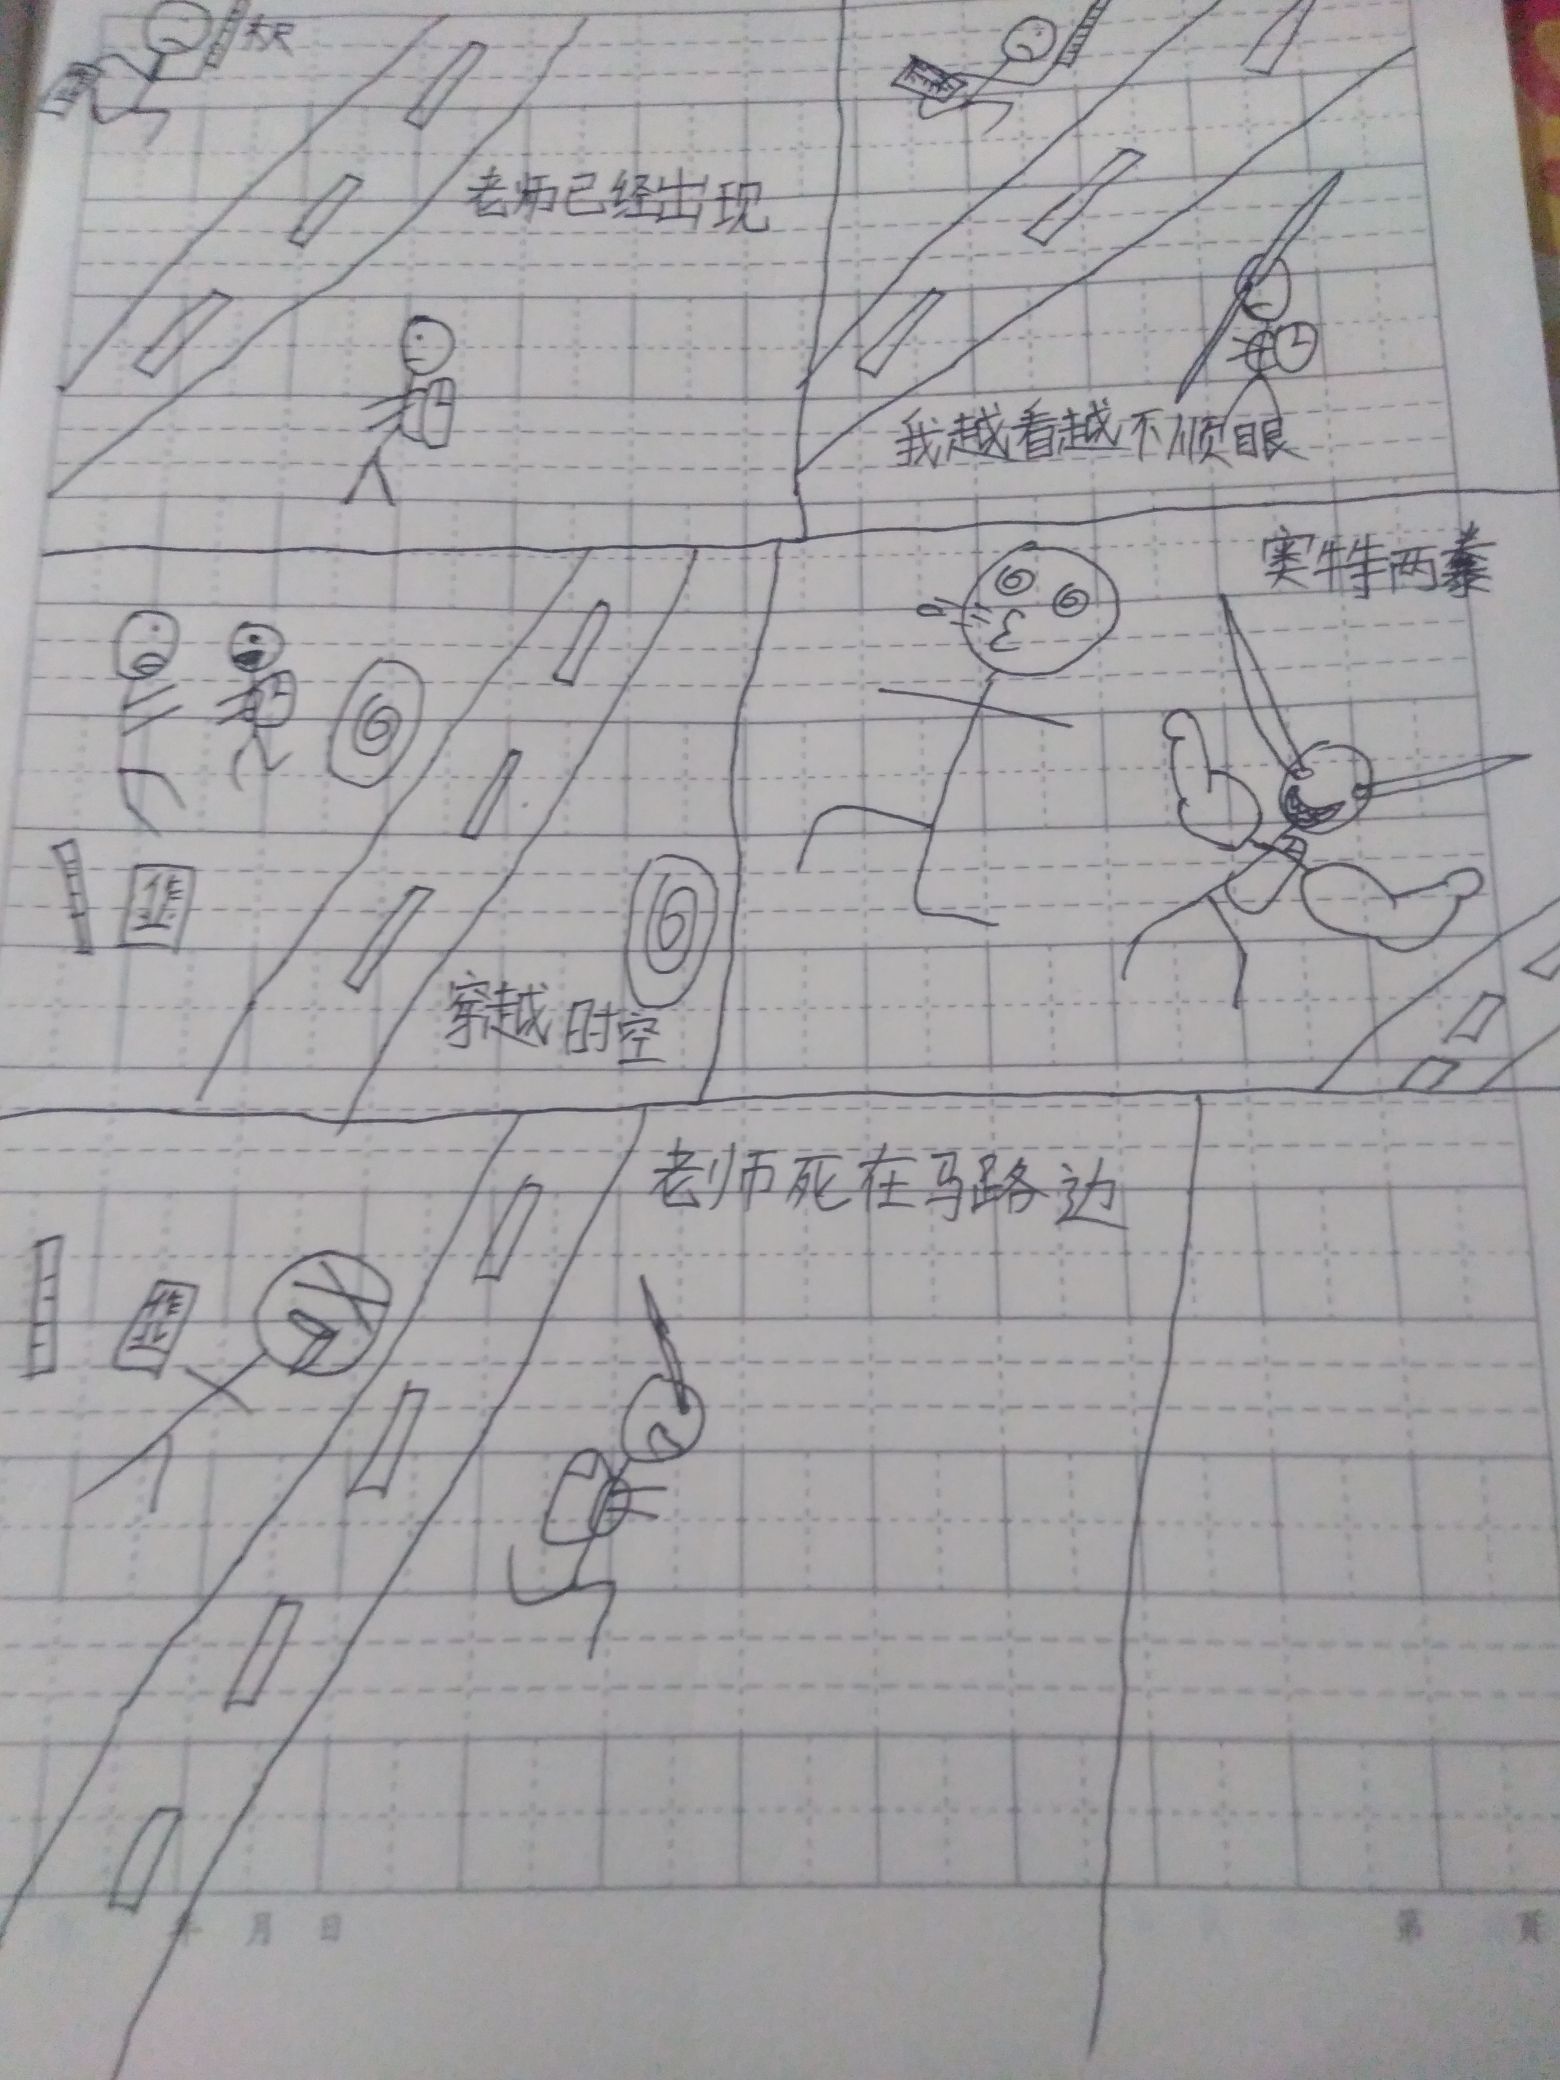 大尺
作业
老师已经出现
我越看越不顺眼
穿越时空
作业
老师死在马路边
作业
年 月 日
第 页